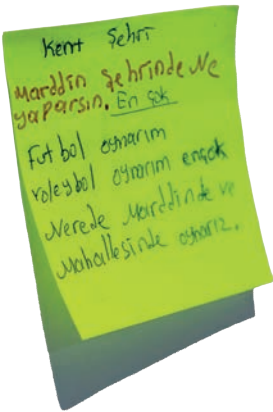 Kent Şehri
Marddin Şehrinde Ne
yaparsın. En çok
Futbol oynarım
voleybol oynarım ençok
Nerede Marddinde ve
Mahallesinde oynarız.